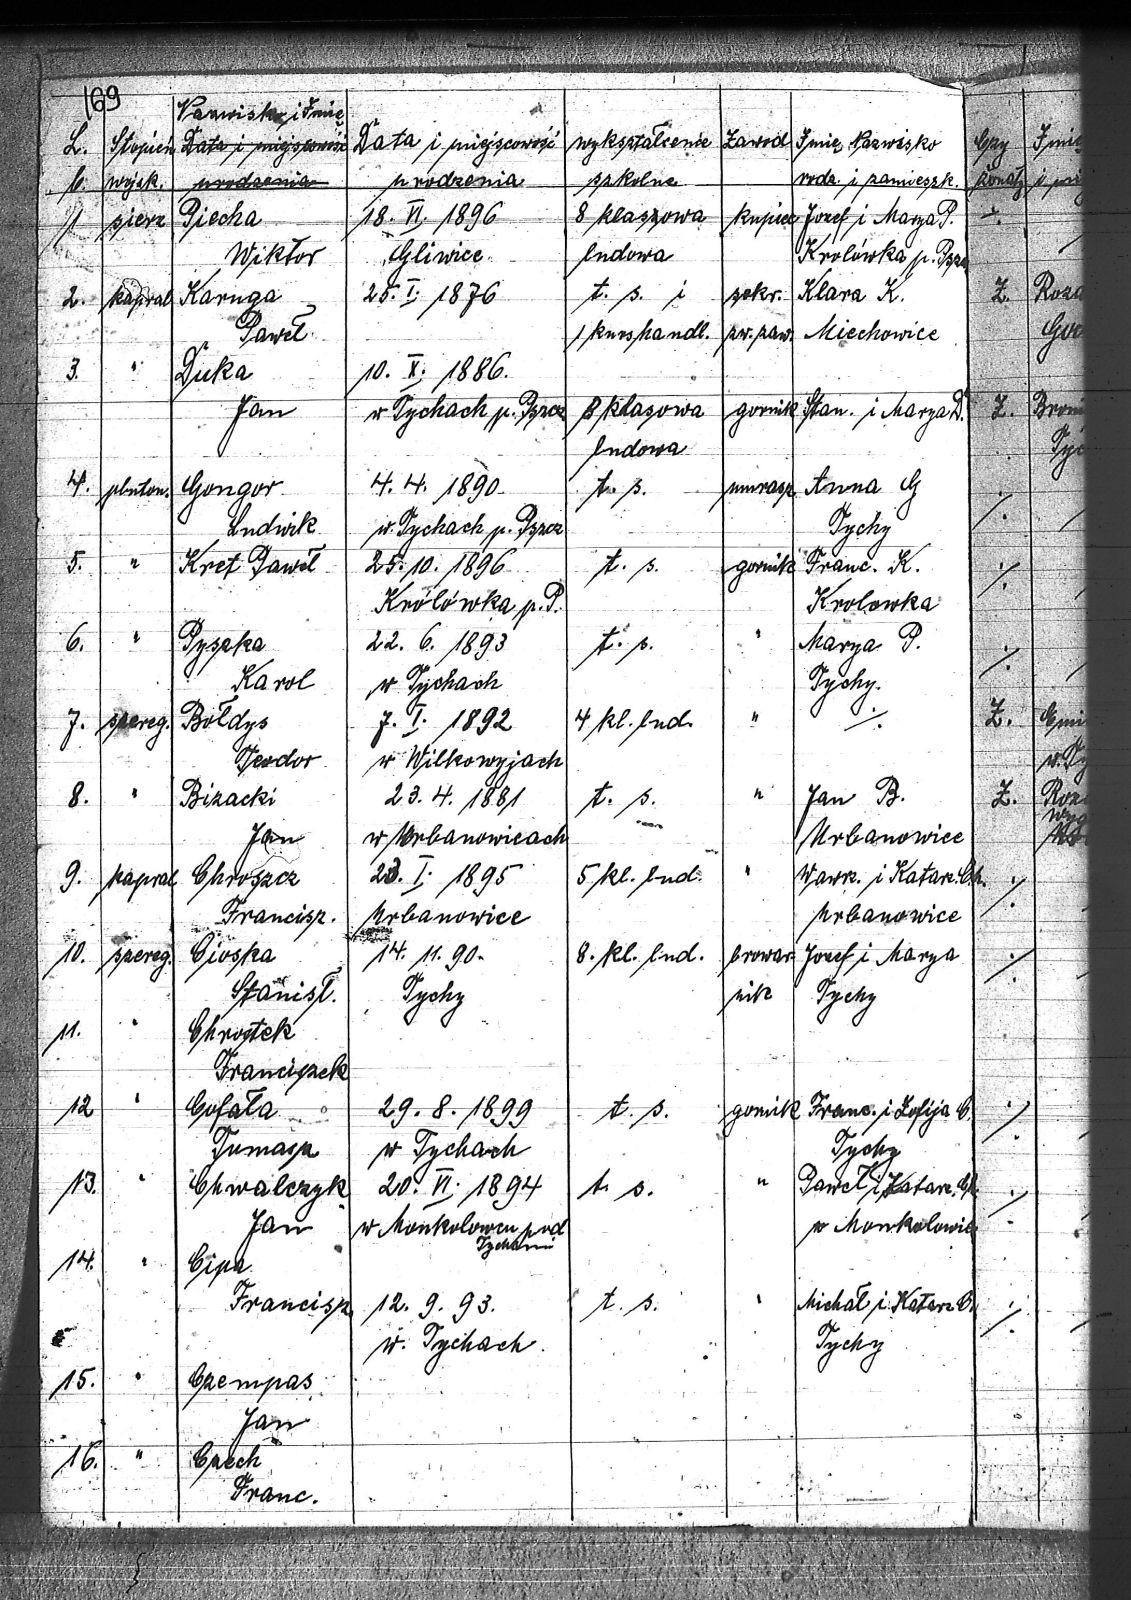 169
Nazwisko i Imię
L. Stopień Data i miejscowość Data i miejscowość wykształcenie Zawód Imię Nazwisko Czy Imię
b. wojsk. urodzenia urodzenia szkolne rodz. i zamieszk. żonaty i
1 sierż Piecha 18. VI. 1896 8 klaszowa kupiec Jozef i Marya P. -/.
Wiktor Gliwice ludowa Krolówka p. Pszcz
2. kapral Karuga 25. I. 1876 t. s. i sekr. Klara K. Ż. Roza
Paweł 1 kurs handl. zw. zaw. Miechowice
3. " Duka 10. X. 1886.
Jan w Tychach p. Pszcz 8 klasowa gornik Stan. i Marya D. Ż. Broni
ludowa Tyc
4. pluton. Gongor 4. 4. 1890 t. s. murasz Anna G ./.
Ludwik w Tychach p. Pszcz Tychy
5. " Kret Paweł 25. 10. 1896 t. s. gornik Franc. K. ./.
Królówka p. P. Krolowka
6. " Pyszka 22. 6. 1893 t. s. " Marya P. ./.
Karol w Tychach Tychy.
7. szereg. Bołdys 7. I. 1892 4 kl. lud. " ./. Ż.
Teodor w Wilkowyjach
8. " Bizacki 23. 4. 1881 t. s. " Jan B. Ż. Roza
Jan w Urbanowicach Urbanowice
9. kapral Chroszcz 23. I. 1895 5 kl. lud. " Wawrz. i Katarz. Ch. ./.
Francisz. Urbanowice Urbanowice
10. szereg. Cioska 14. 11. 90. 8. kl. lud. browar- Jozef i Marya ./.
Stanisł. Tychy nik Tychy
11. " Chrostek
Franciszek
12 " Cofała 29. 8. 1899 t. s. gornik Franc. i Zofija C. ./.
Tomasz w Tychach Tychy
13. " Chwalczyk 20. VI. 1894 t. s. " Paweł i Katarz. Ch. ./.
Jan w Monkolowcu pod w Monkolowic
Tychami
14. " Cipa
Francisz 12. 9. 93. t. s. " Michał i Katarz C. ./.
w. Tychach. Tychy
15. " Czempas
Jan
16. " Czech
Franc.